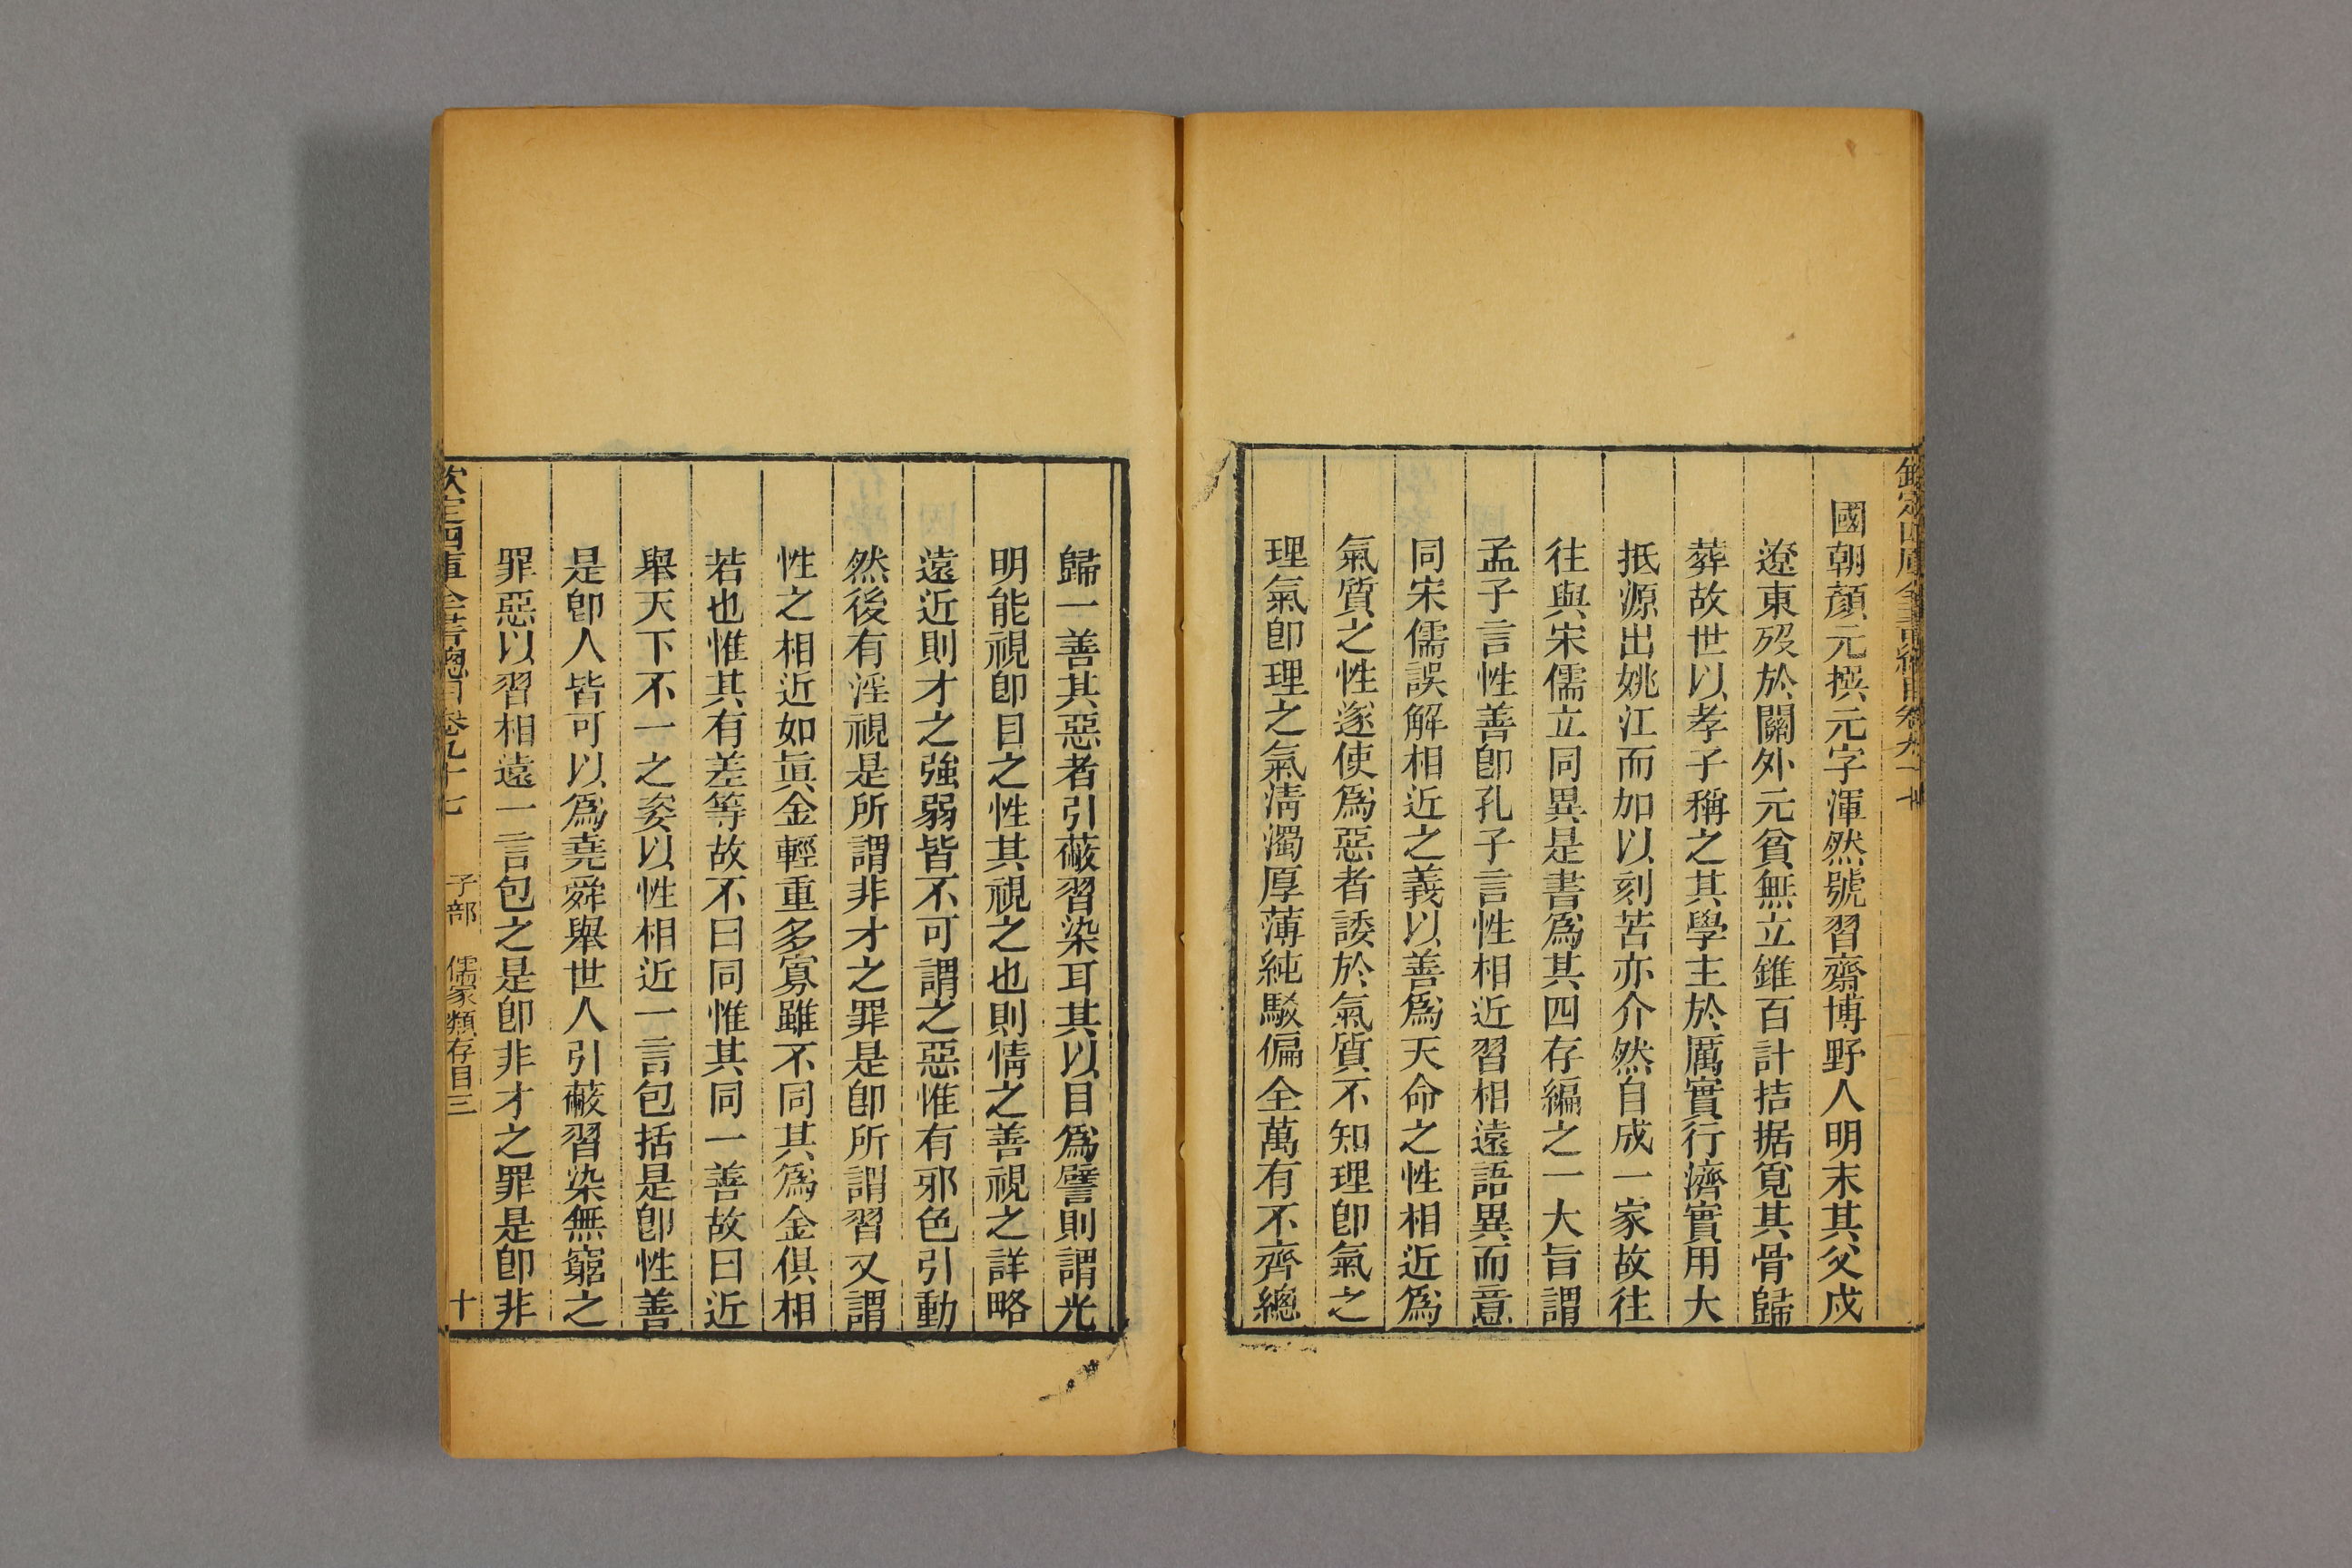 國朝顏元撰元字渾然號習齋博野人明末其父戍
遼東歿於關外元貧無立錐百計拮据覓其骨歸
葬故世以孝子稱之其學主於厲實行濟實用大
抵源出姚江而加以刻苦亦介然自成一家故往
往與宋儒立同異是書爲其四存編之一大旨謂
孟子言性善卽孔子言性相近習相遠語異而意
同宋儒誤解相近之義以善爲天命之性相近爲
氣質之性遂使爲惡者諉於氣質不知理卽氣之
理氣卽理之氣淸濁厚薄純駁偏全萬有不齊總
歸一善其惡者引蔽習染耳其以目爲譬則謂光
明能視卽目之性其視之也則情之善視之詳略
遠近則才之強弱皆不可謂之惡惟有邪色引動
然後有淫視是所謂非才之罪是卽所謂習又謂
性之相近如眞金輕重多寡雖不同其爲金俱相
若也惟其有差等故不曰同惟其同一善故曰近
舉天下不一之姿以性相近一言包括是卽性善
是卽人皆可以爲堯舜舉世人引蔽習染無窮之
罪惡以習相遠一言包之是卽非才之罪是卽非
欽定四庫全書總目卷九十七 子部 儒家類存目三 十